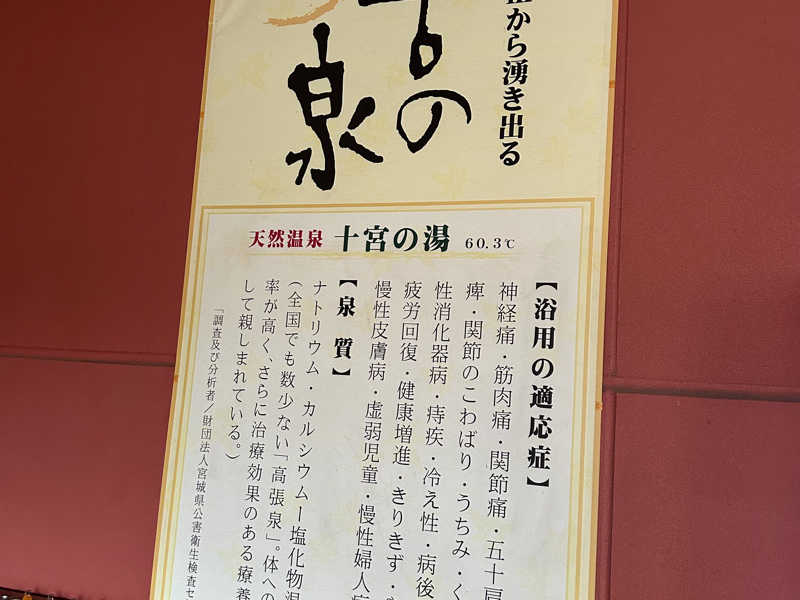 から湧き出る
宮の
泉
天然温泉 十宮の湯 60.3℃
【浴用の適応症】
神経痛・筋肉痛・関節痛・五十肩
痺・関節のこわばり・うちみ・く
性消化器病・痔疾・冷え性・病後
疲労回復・健康増進・きりきず・
慢性皮膚病・虚弱児童・慢性婦人病
【泉質】
ナトリウム・カルシウムー塩化物温
(全国でも数少ない「高張泉」。体への
率が高く、さらに治療効果のある療養
して親しまれている。)
「調査及び分析者/財団法人宮城県公害衛生検査セ